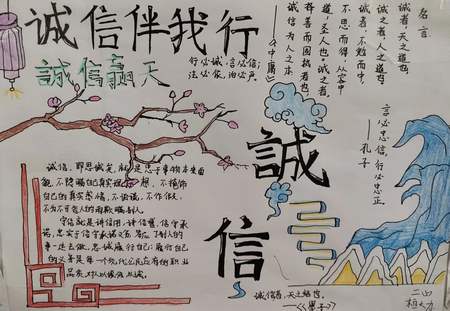 诚信伴我行
誠信贏天
行必诚,言必信;
名言
诚者,天之道也,
诚之者,人之道也。
诚者,不勉而中,
不思而得,从容中
道,圣人也。诚之者,
择善而固执者也。
——《中庸》
诚信为人之本
言必忠信,行必忠正
——孔子
誠
信
诚信,即思诚笃,就是忠于事物本来面
貌,不隐瞒自己真实思想,不掩饰
自己的真实感情,不说谎,不作假,
不为不可告人的目的欺瞒别人。
守信就是讲信用,讲信誉,信守承
诺,忠实于信守承诺义务,答应了别人的
事一定去做,忠诚履行自己
的义务是每一个现代公民应有的职业
品质
诚信者,天之结也。
——《墨子》
二四